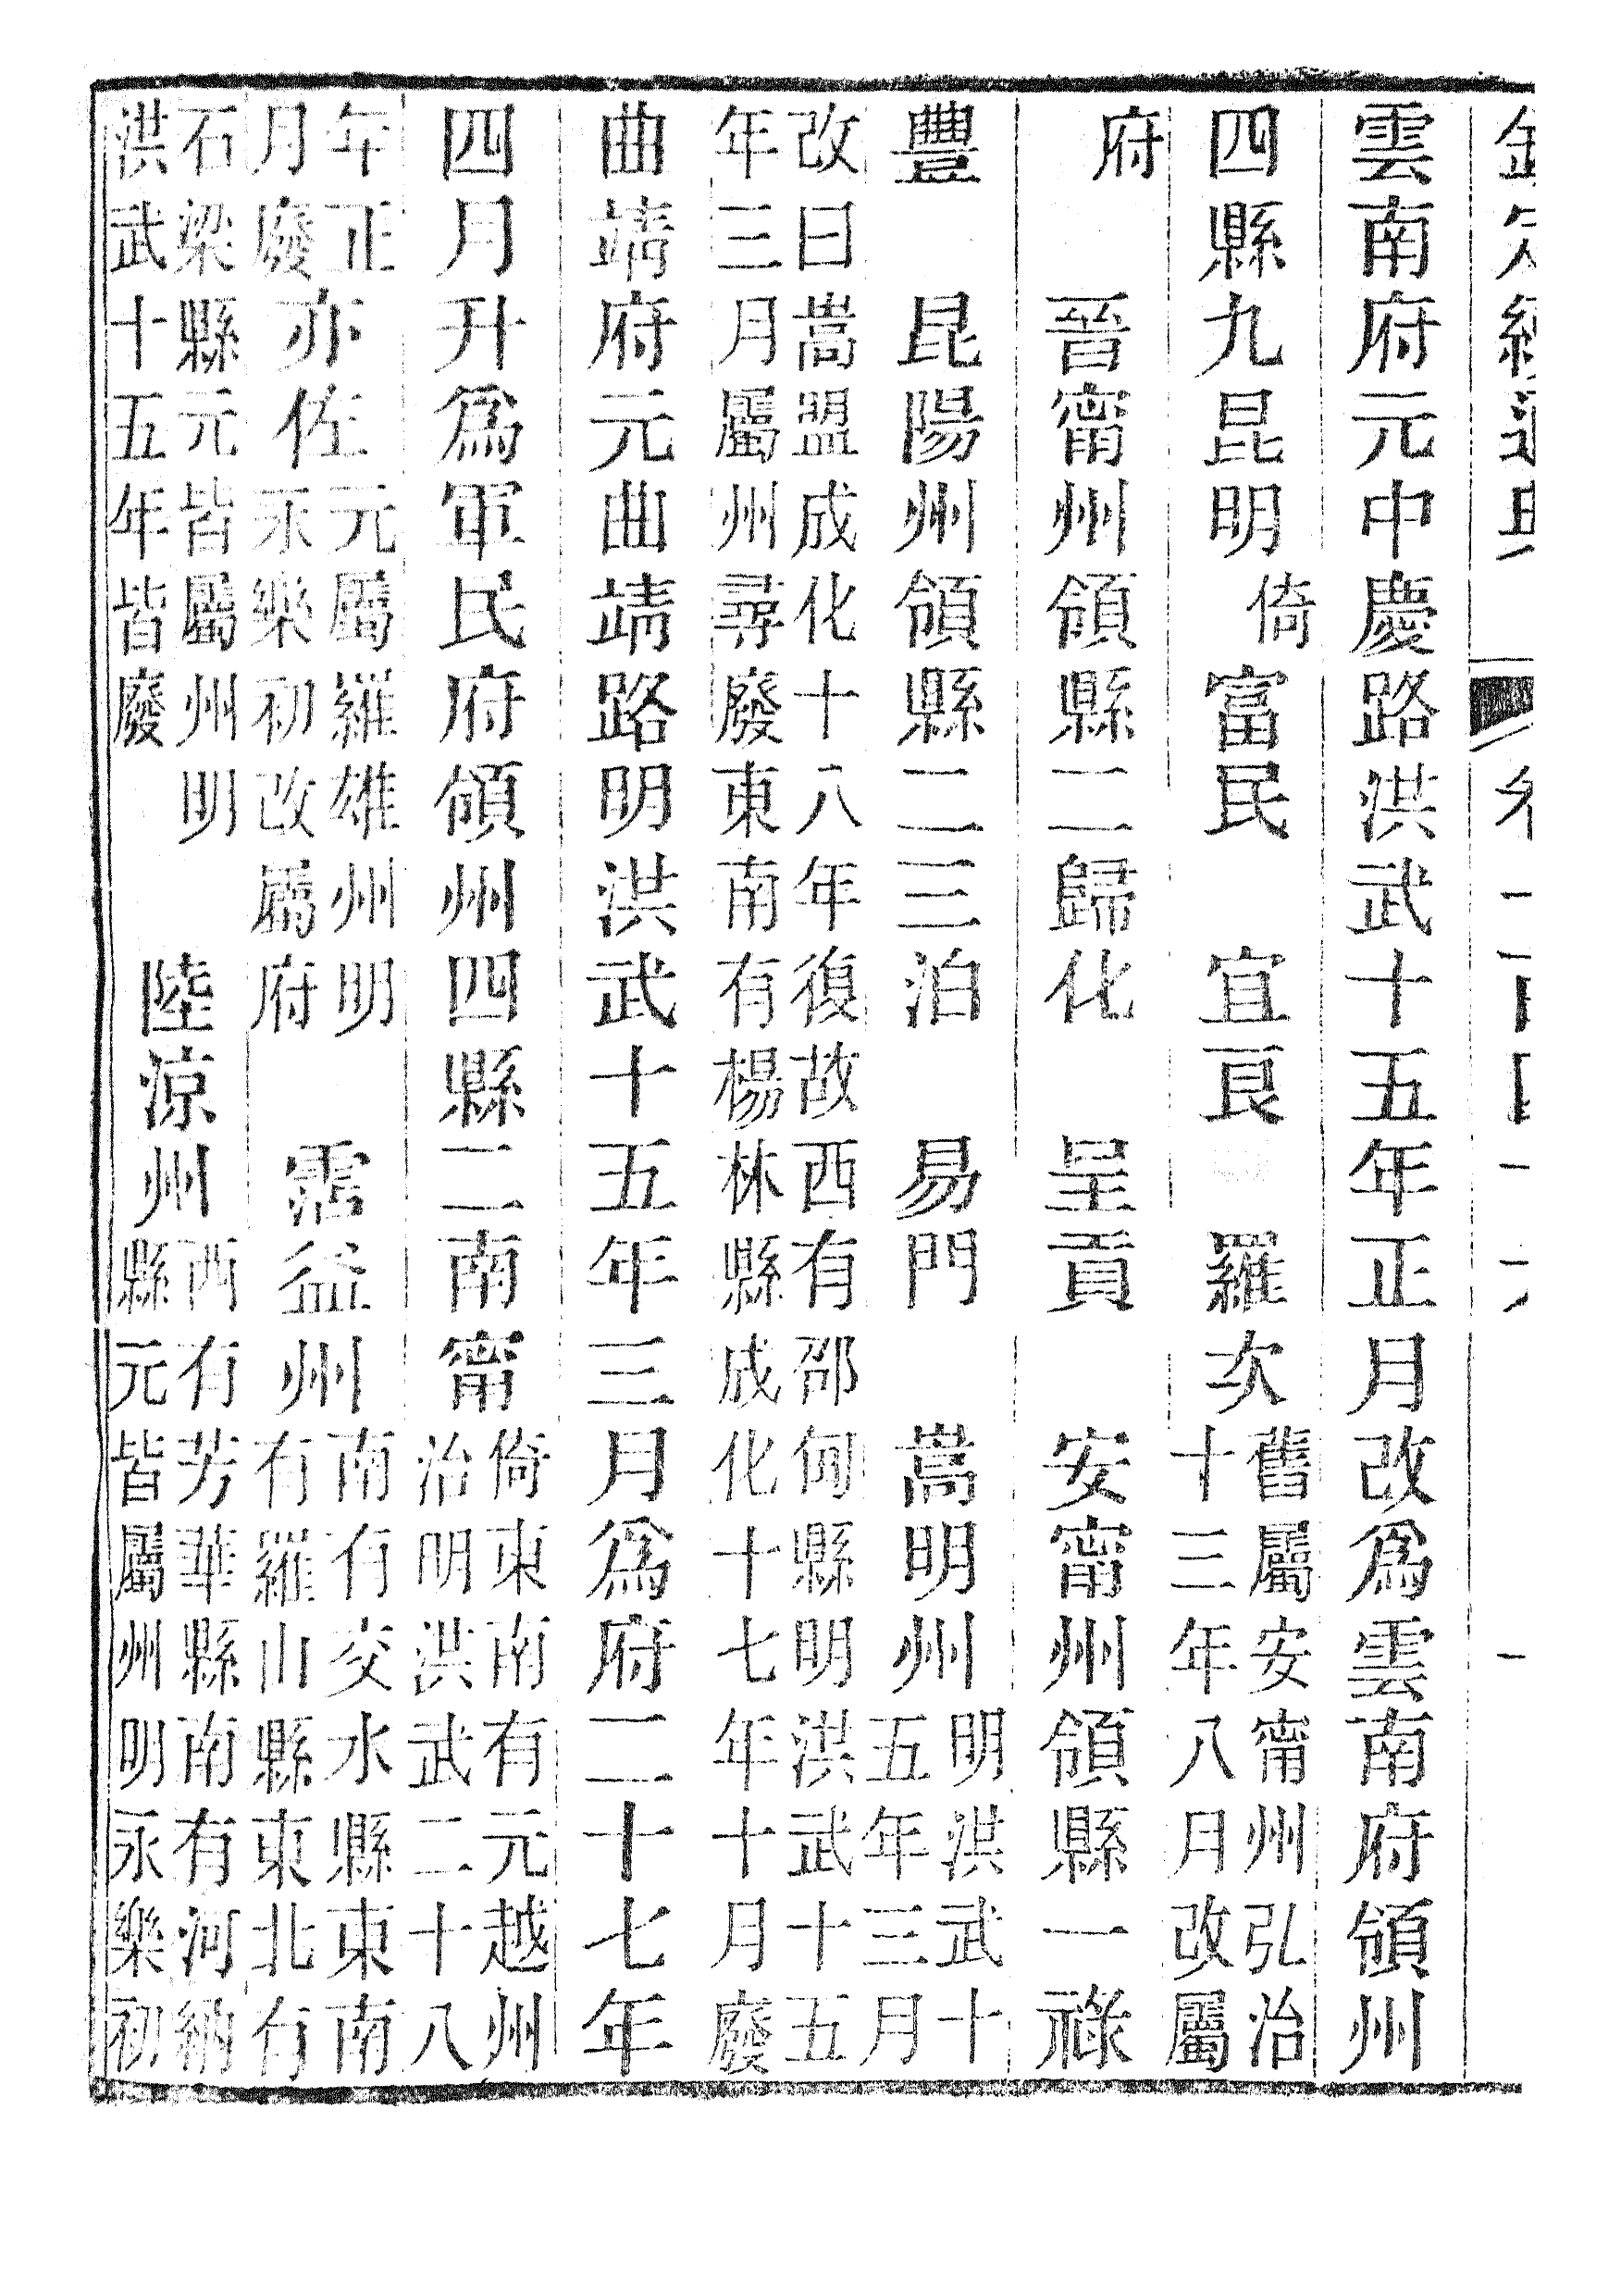 雲南府元中慶路洪武十五年正月改爲雲南府領州
四縣九昆明倚富民 宜良 羅次舊屬安甯州弘治十三年八月改屬
府 晉甯州領縣二歸化 呈貢 安甯州領縣一祿
豐 昆陽州領縣二三泊 易門 嵩明州明洪武十五年三月
改曰嵩盟成化十八年復故西有邵甸縣明洪武十五年三月屬州尋廢東南有楊林縣成化十七年十月廢
曲靖府元曲靖路明洪武十五年三月爲府二十七年
四月升爲軍民府領州四縣二南甯倚東南有元越州治明洪武二十八
年正月廢亦佐元屬羅雄州明永樂初改屬府 霑益州南有交水縣東南有羅山縣東北有
石梁縣元皆屬州明洪武十五年皆廢 陸涼州西有芳華縣南有河納縣元皆屬州明永樂初